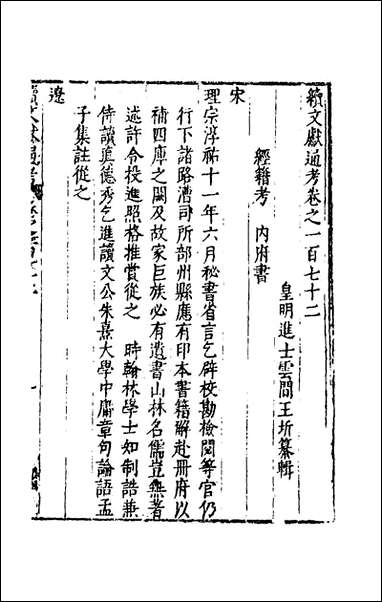 續文獻通考卷之一百七十二
皇明進士雲間王圻纂輯
經籍考 内府書
宋
理宗淳祐十一年六月秘書省言乞辟校勘檢閱等官仍
行下諸路漕司所部州縣應有印本書籍解赴冊府以
補四庫之闕及故家巨族必有遺書山林名儒豈無著
述許令投進照格推賞從之 時翰林學士知制誥兼
侍讀真德秀乞進讀文公朱熹大學中庸章句論語孟
子集註從之
遼